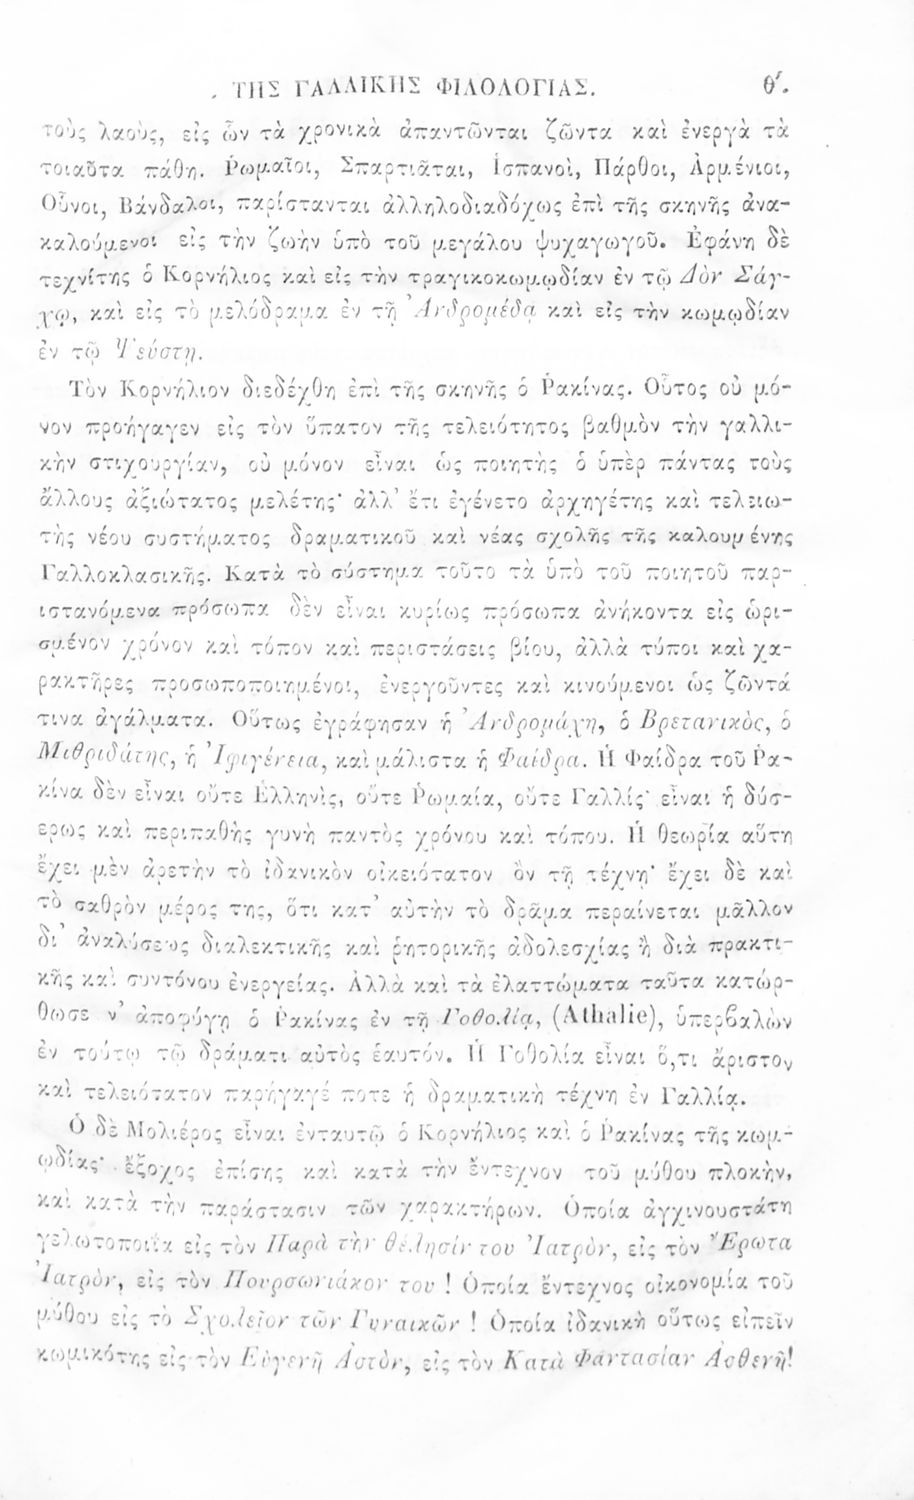 ΤΗΣ ΓΑΛΛΙΚΗΣ ΦΙΛΟΛΟΓΙΑΣ. θ΄.
τοὺς λαοὺς, εἰς ὧν τὰ χρονικὰ ἀπαντῶνται ζῶντα καὶ ἐνεργὰ τὰ
τοιαῦτα πάθη. Ῥωμαῖοι, Σπαρτιᾶται, Ἱσπανοὶ, Πάρθοι, Ἀρμένιοι,
Οὗνοι, Βάνδαλοι, παρίστανται ἀλληλοδιαδόχως ἐπὶ τῆς σκηνῆς ἀνα-
καλούμενοι εἰς τὴν ζωὴν ὑπὸ τοῦ μεγάλου ψυχαγωγοῦ. Ἐφάνη δὲ
τεχνίτης ὁ Κορνήλιος καὶ εἰς τὴν τραγικοκωμῳδίαν ἐν τῷ Δὸν Σάγ-
χῳ, καὶ εἰς τὸ μελόδραμα ἐν τῇ Ἀνδρομέδᾳ καὶ εἰς τὴν κωμῳδίαν
ἐν τῷ Ψεύστῃ.
Τὸν Κορνήλιον διεδέχθη ἐπὶ τῆς σκηνῆς ὁ Ῥακίνας. Οὗτος οὐ μό-
νον προήγαγεν εἰς τὸν ὕπατον τῆς τελειότητος βαθμὸν τὴν γαλλι-
κὴν στιχουργίαν, οὐ μόνον εἶναι ὡς ποιητὴς ὁ ὑπὲρ πάντας τοὺς
ἄλλους ἀξιώτατος μελέτης· ἀλλ' ἔτι ἐγένετο ἀρχηγέτης καὶ τελειω-
τὴς νέου συστήματος δραματικοῦ καὶ νέας σχολῆς τῆς καλουμένης
Γαλλοκλασικῆς. Κατὰ τὸ σύστημα τοῦτο τὰ ὑπὸ τοῦ ποιητοῦ παρ-
ιστανόμενα πρόσωπα δὲν εἶναι κυρίως πρόσωπα ἀνήκοντα εἰς ὡρι-
σμένον χρόνον καὶ τόπον καὶ περιστάσεις βίου, ἀλλὰ τύποι καὶ χα-
ρακτῆρες προσωποποιημένοι, ἐνεργοῦντες καὶ κινούμενοι ὡς ζῶντά
τινα ἀγάλματα. Οὕτως ἐγράφησαν ἡ Ἀνδρομάχη, ὁ Βρετανικὸς, ὁ
Μιθριδάτης, ἡ Ἰφιγένεια, καὶ μάλιστα ἡ Φαίδρα. Ἡ Φαίδρα τοῦ Ῥα-
κίνα δὲν εἶναι οὔτε Ἑλληνὶς, οὔτε Ῥωμαία, οὔτε Γαλλίς· εἶναι ἡ δύσ-
ερως καὶ περιπαθὴς γυνὴ παντὸς χρόνου καὶ τόπου. Ἡ θεωρία αὕτη
ἔχει μὲν ἀρετὴν τὸ ἰδανικὸν οἰκειότατον ὂν τῇ τέχνῃ· ἔχει δὲ καὶ
τὸ σαθρὸν μέρος της, ὅτι κατ' αὐτὴν τὸ δρᾶμα περαίνεται μᾶλλον
δι' ἀναλύσεως διαλεκτικῆς καὶ ῥητορικῆς ἀδολεσχίας ἢ διὰ πρακτι-
κῆς καὶ συντόνου ἐνεργείας. Ἀλλὰ καὶ τὰ ἐλαττώματα ταῦτα κατώρ-
θωσε ν' ἀποφύγῃ ὁ Ῥακίνας ἐν τῇ Γοθολίᾳ, (Athalie), ὑπερβαλὼν
ἐν τούτῳ τῷ δράματι αὐτὸς ἑαυτόν. Ἡ Γοθολία εἶναι ὅ,τι ἄριστον
καὶ τελειότατον παρήγαγέ ποτε ἡ δραματικὴ τέχνη ἐν Γαλλίᾳ.
Ὁ δὲ Μολιέρος εἶναι ἐνταυτῷ ὁ Κορνήλιος καὶ ὁ Ῥακίνας τῆς κωμ-
ῳδίας· ἔξοχος ἐπίσης καὶ κατὰ τὴν ἔντεχνον τοῦ μύθου πλοκὴν,
καὶ κατὰ τὴν παράστασιν τῶν χαρακτήρων. Ὁποία ἀγχινουστάτη
γελωτοποιΐα εἰς τὸν Παρὰ τὴν θέλησίν του Ἰατρὸν, εἰς τὸν Ἔρωτα
Ἰατρὸν, εἰς τὸν Πουρσωνιάκον του! Ὁποία ἔντεχνος οἰκονομία τοῦ
μύθου εἰς τὸ Σχολεῖον τῶν Γυναικῶν! Ὁποία ἰδανικὴ οὕτως εἰπεῖν
κωμικότης εἰς τὸν Εὐγενῆ Ἀστὸν, εἰς τὸν Κατὰ Φαντασίαν Ἀσθενῆ!